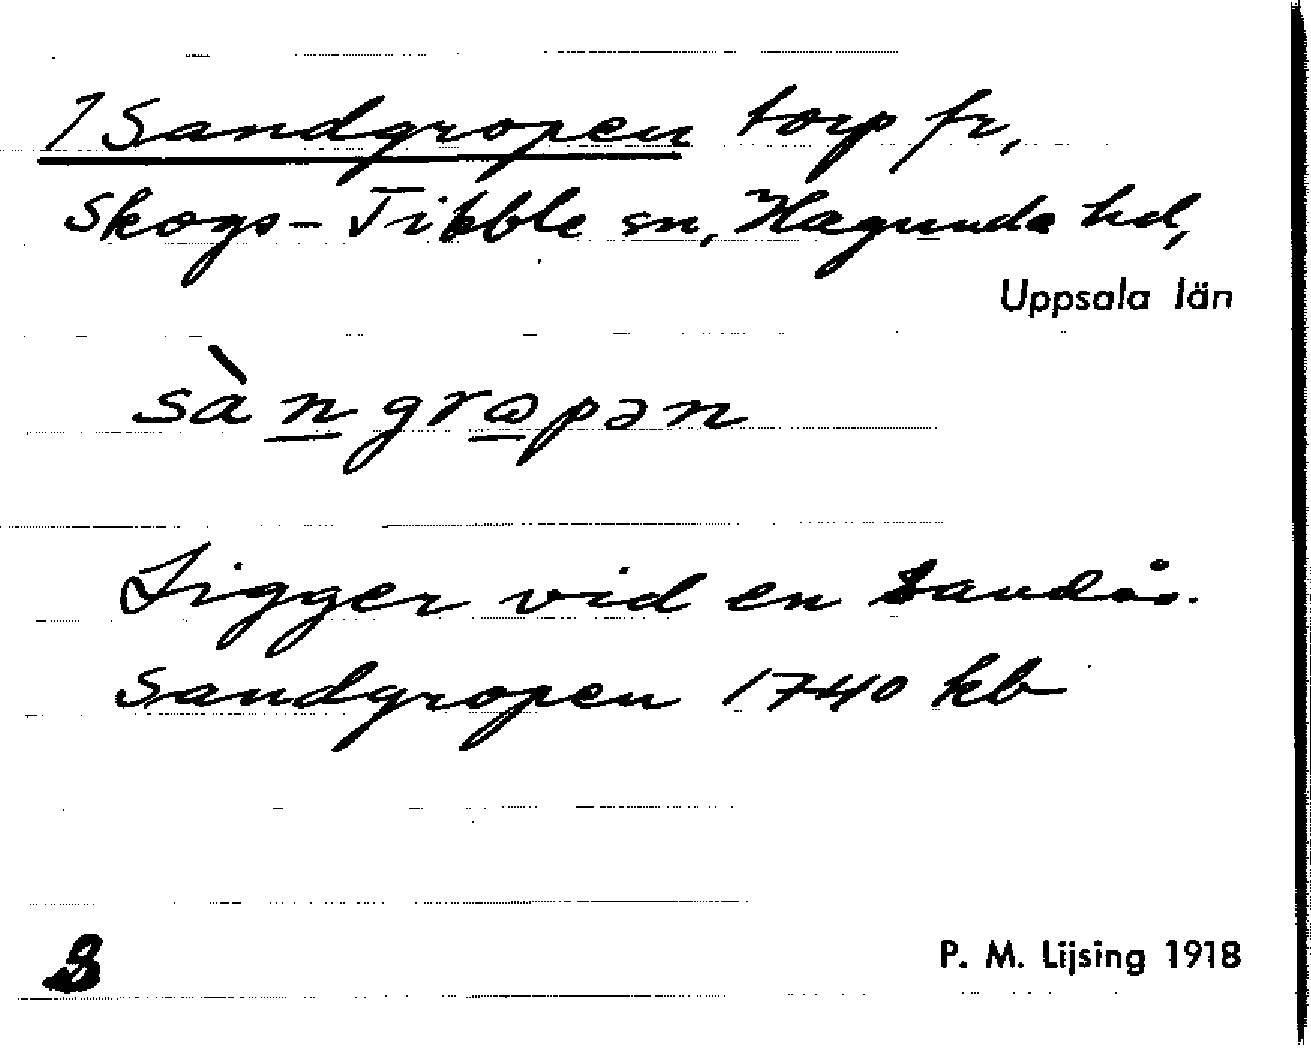 1 Sandgropen torp fr,
Skogs-Tibble sn, Hagunda hd,
Uppsala län
sàngrapən
Ligger vid en sandås.
Sandgropen 1740 kb
P. M. Lijsing 1918